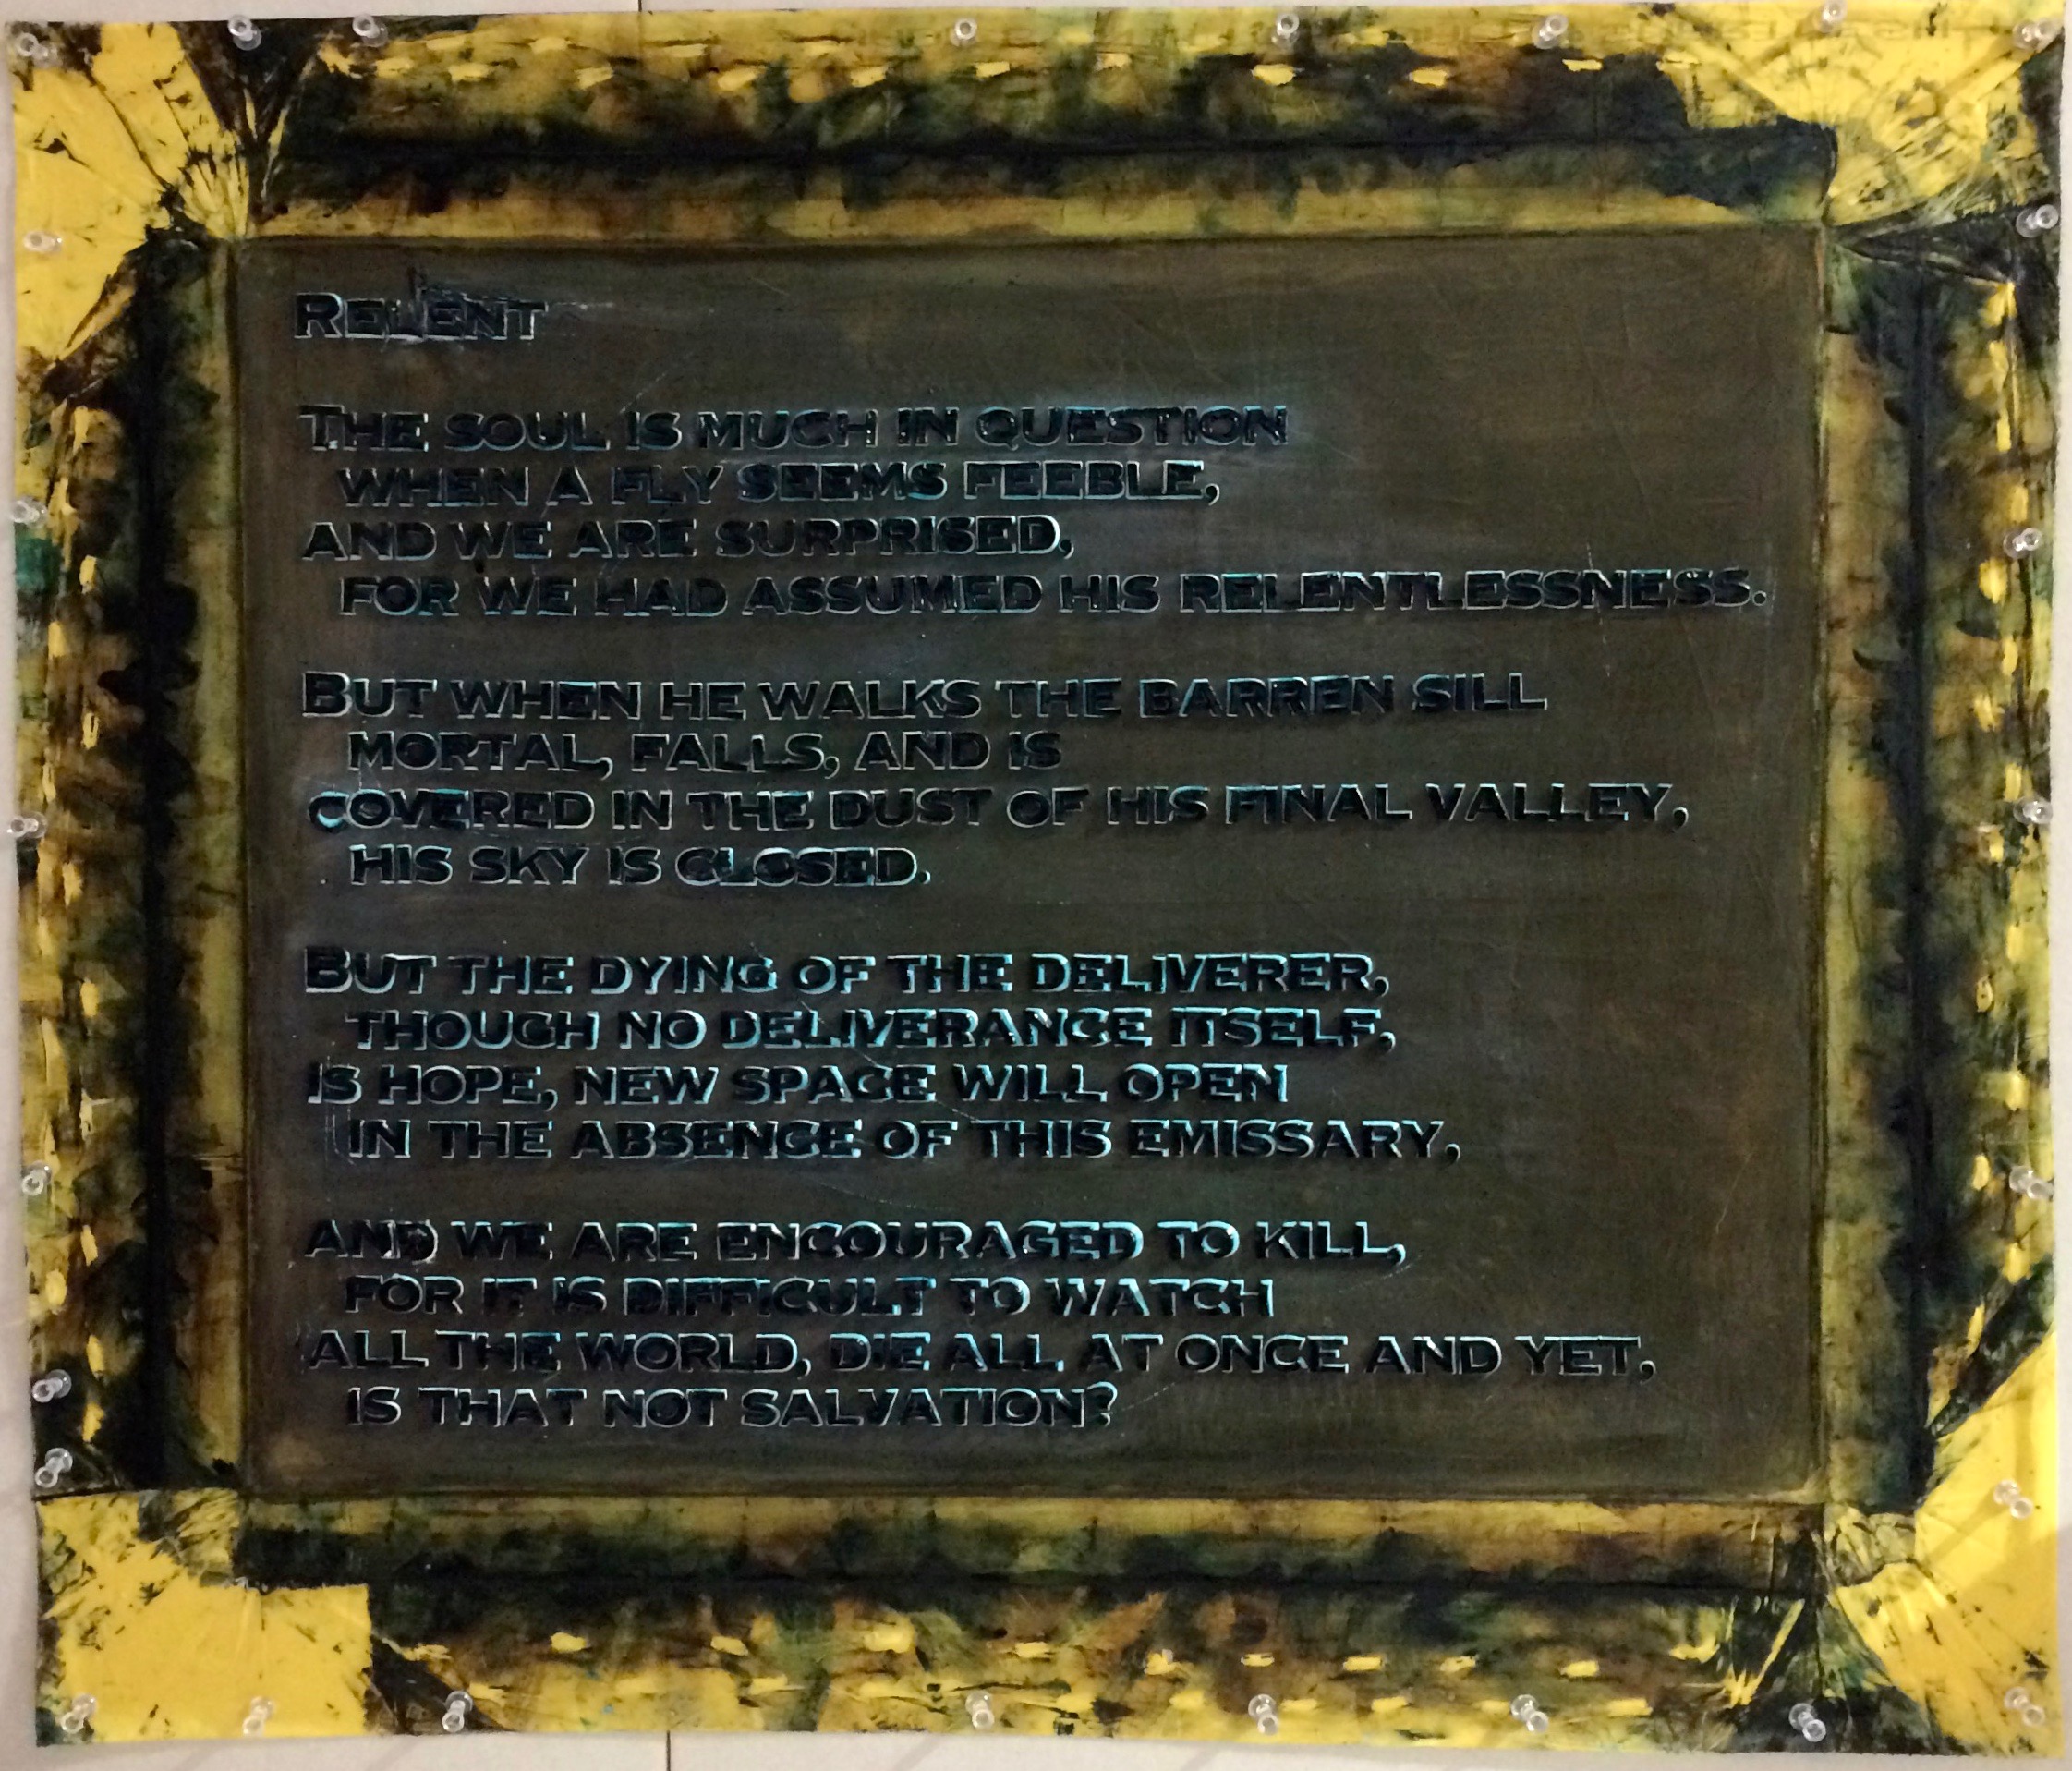 RELENT
THE SOUL IS MUCH IN QUESTION
WHEN A FLY SEEMS FEEBLE,
AND WE ARE SURPRISED,
FOR WE HAD ASSUMED HIS RELENTLESSNESS.
BUT WHEN HE WALKS THE BARREN SILL
MORTAL, FALLS, AND IS
COVERED IN THE DUST OF HIS FINAL VALLEY,
HIS SKY IS CLOSED.
BUT THE DYING OF THE DELIVERER,
THOUGH NO DELIVERANCE ITSELF,
IS HOPE, NEW SPACE WILL OPEN
IN THE ABSENCE OF THIS EMISSARY,
AND WE ARE ENCOURAGED TO KILL,
FOR IT IS DIFFICULT TO WATCH
ALL THE WORLD, DIE ALL AT ONCE AND YET,
IS THAT NOT SALVATION?